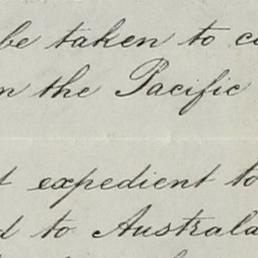 be taken to c
n the Pacific
t expedient to
d to Australa